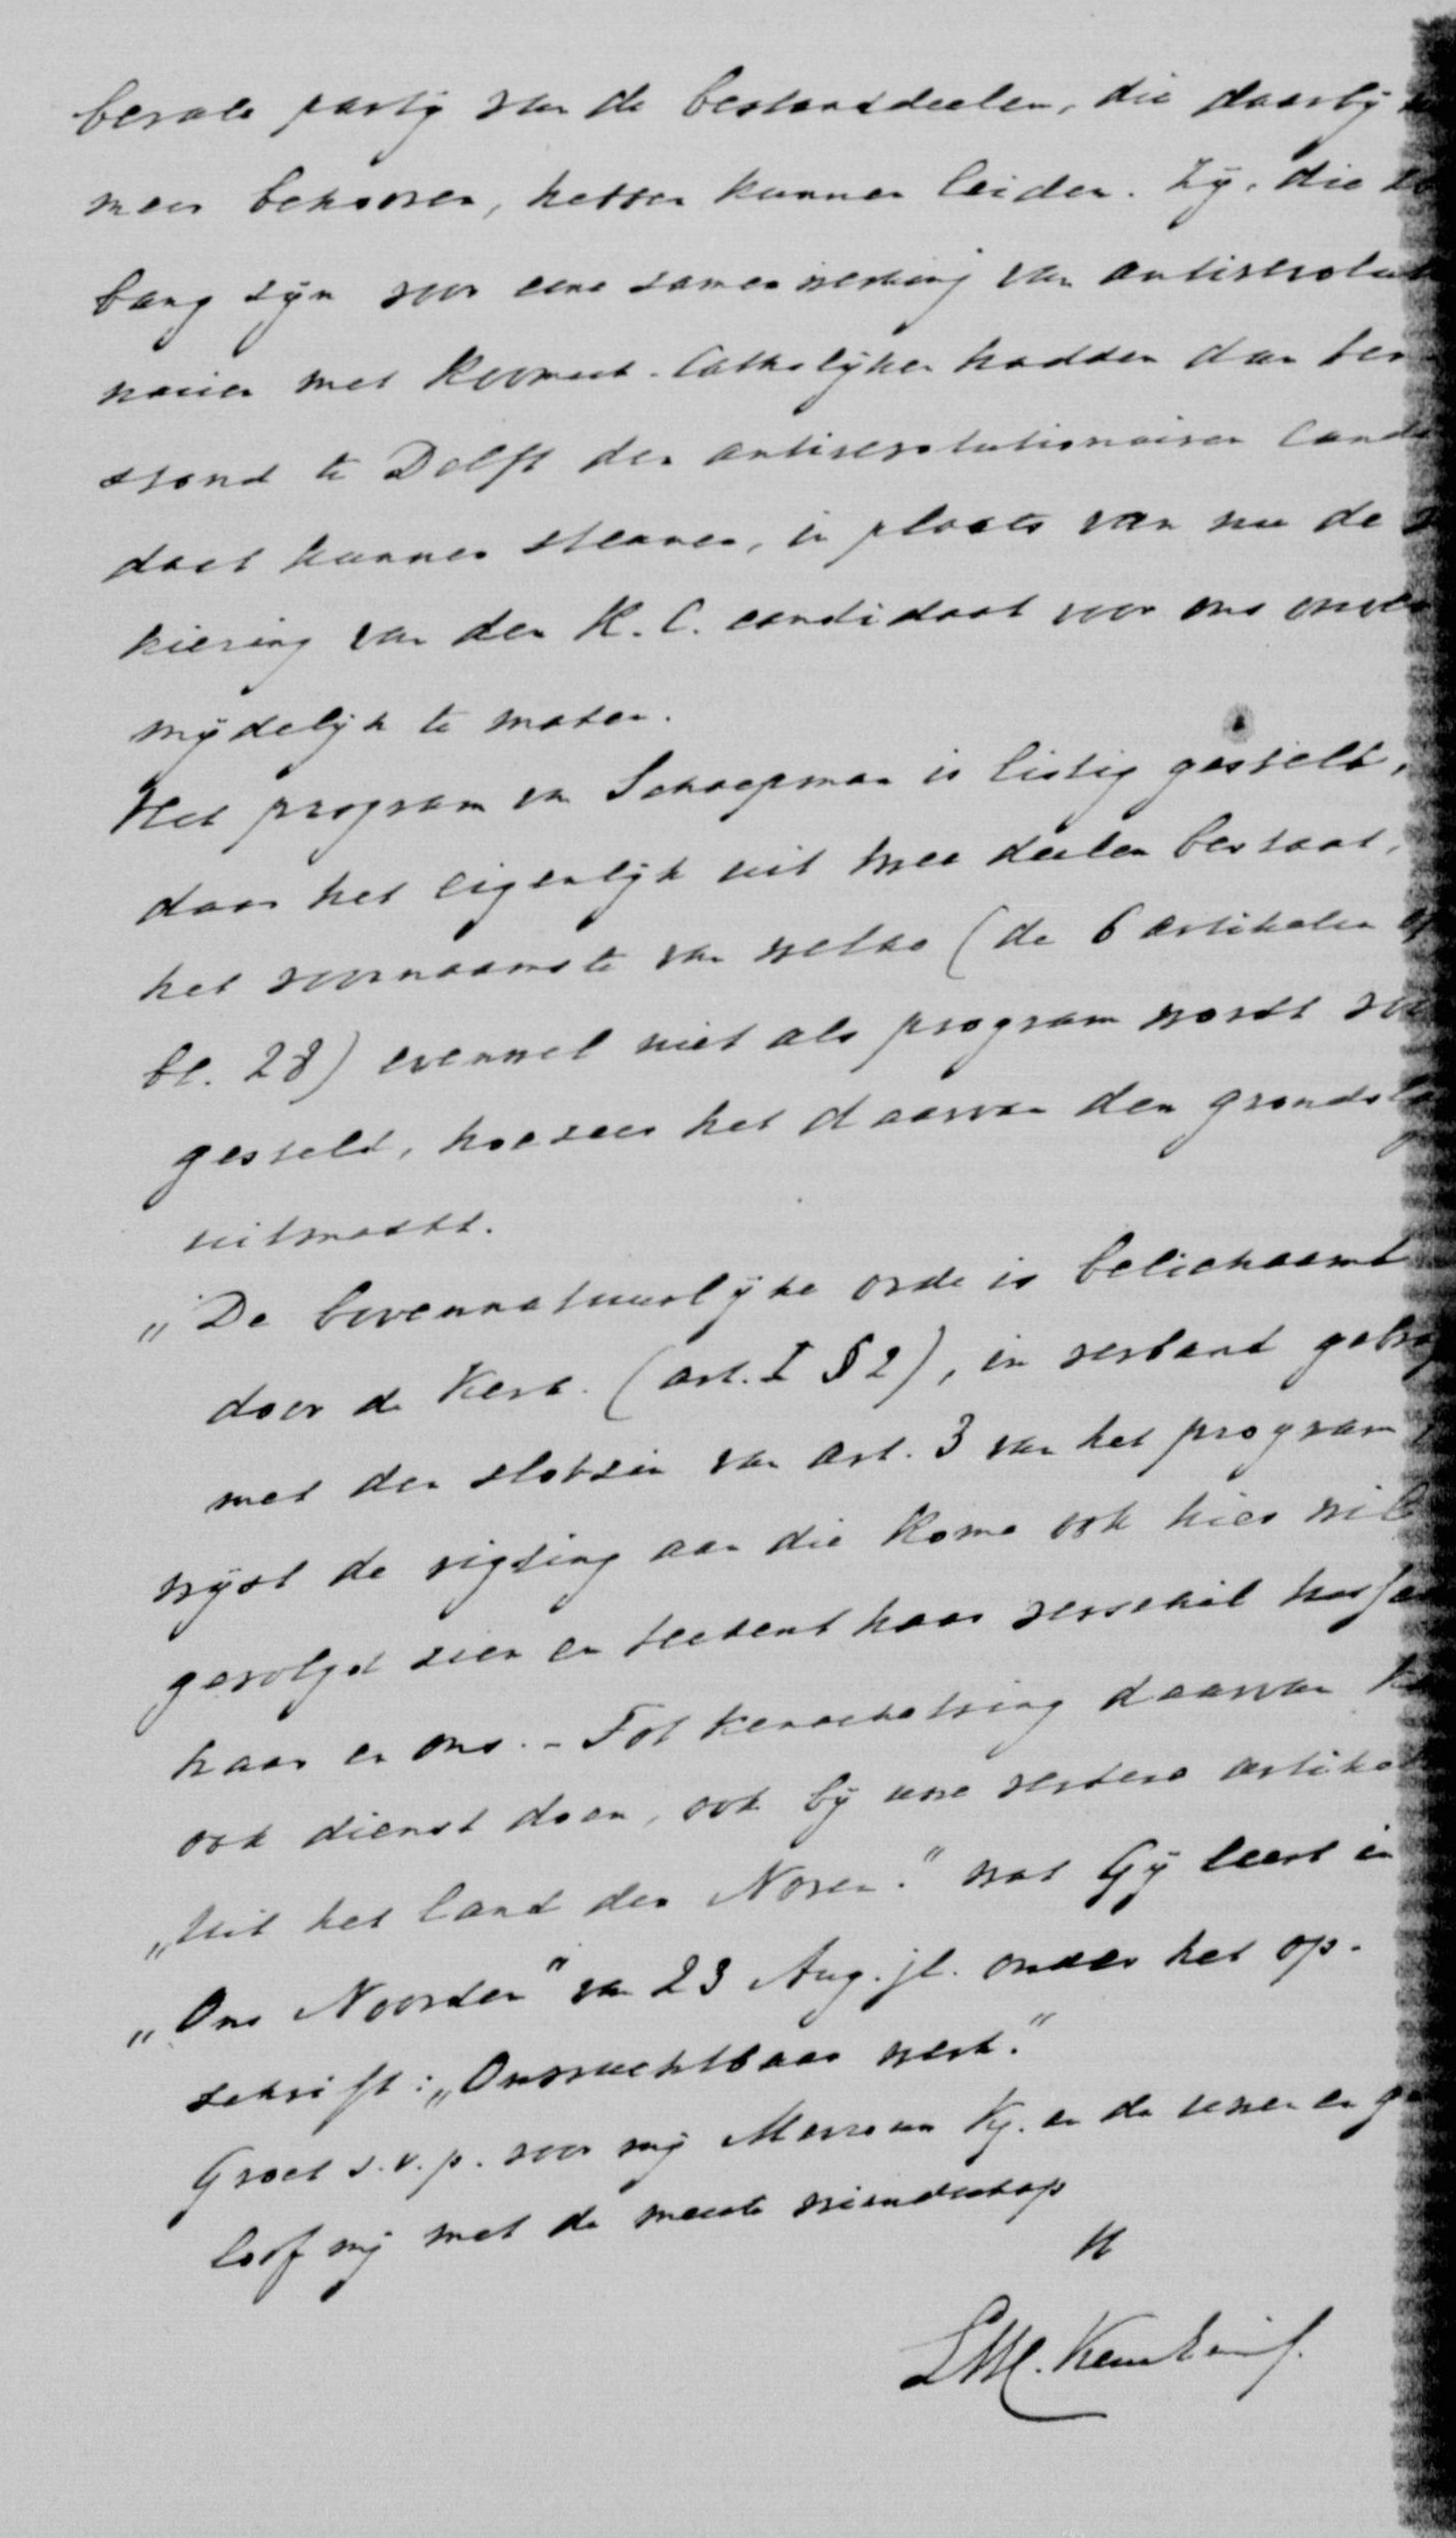 berale partij van de bestanddeelen, die daarbij
meer behooren, hebben kunnen leiden. Zij, die
bang zijn voor eene samenwerking van antirevolut
nairen met Roomsch-Catholijken hadden dan
stond te Delft den antirevolutionairen Candi
daat kunnen steunen, in plaats van nu de
kiezing van den R.C. candidaat voor ons onver
mijdelijk te maken.
Het program van Schaepman is listig gesteld,
daar het eigenlijk uit twee deelen bestaat,
het voornaamste van welke (de 6 artikelen op
bl. 28) evenwel niet als program wordt voor
gesteld, hoezeer het daarvan den grondslag
uitmaakt.
„De bovennatuurlijke orde is belichaamd
door de Kerk. (art. I § 2), in verband gebra
met den slotzin van art. 3 van het program
wijst de rigting aan die Rome ook hier wil
gevolgd zien en teekent haar verschil
haar en ons. – Tot kenschetsing daarvan
ook dienst doen, ook bij uwe verdere artikel
„Uit het land der Noren." wat Gij leest in
„Ons Noorden" van 23 Aug. jl. onder het op-
schrift: „Onvruchtbaar werk."
Groet s.v.p. voor mij Mevrouw Kij. en de uwen en ge
loof mij met de meeste vriendschap
tt
LWC. Keuchenius.